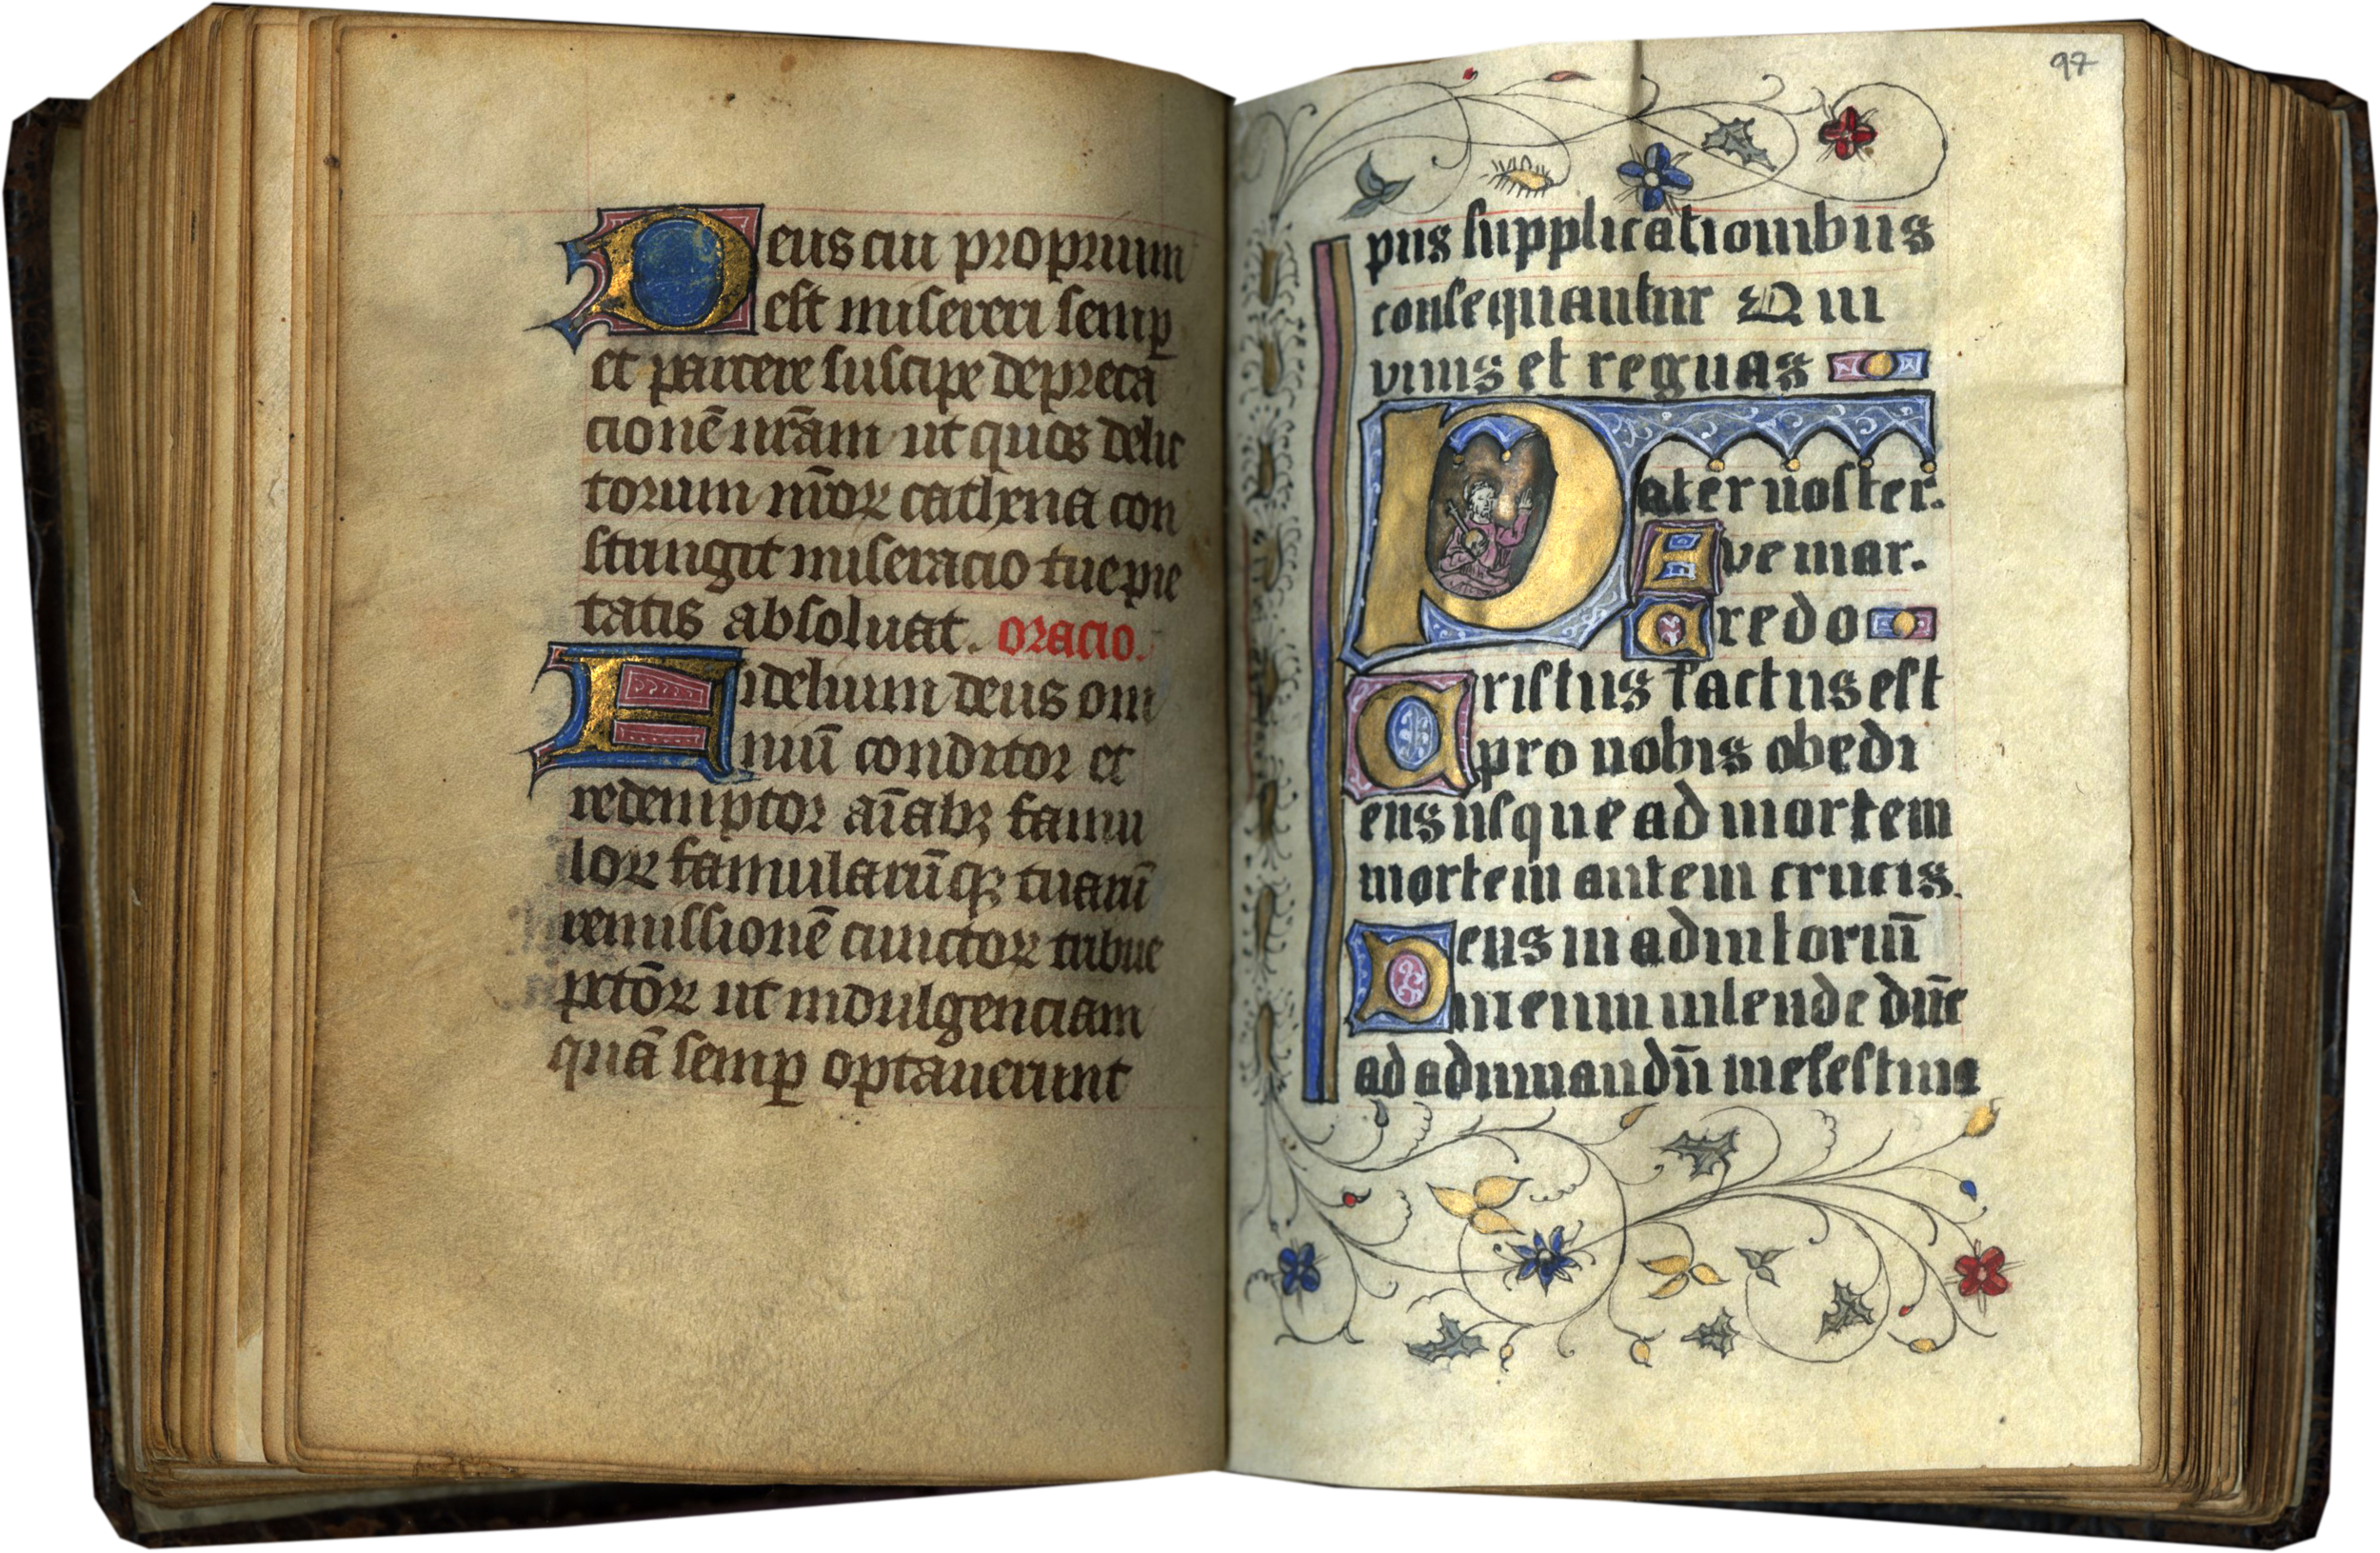 Deus cui proprium
est misereri semp
et parcere suscipe depreca
cionē nr̄am ut quos delic
torum nr̄oꝝ cathena con
stringit miseracio tue pie
tatis absoluat. oracio.
Fidelium deus om
niū conditor et
redemptor aīabꝫ famu
loꝝ famularūqꝫ tuarū
remissionē cunctoꝝ tribue
pctōꝝ ut indulgenciam
quā semꝑ optauerunt
97
piis supplicationibus
consequantur Qui
viuis et regnas
Pater noster.
Ave mar.
Credo
Cristus factus est
pro nobis obedi
ens usque ad mortem
mortem autem crucis.
Deus in adiutoriū
meum intende dn̄e
ad adiuuandū me festina